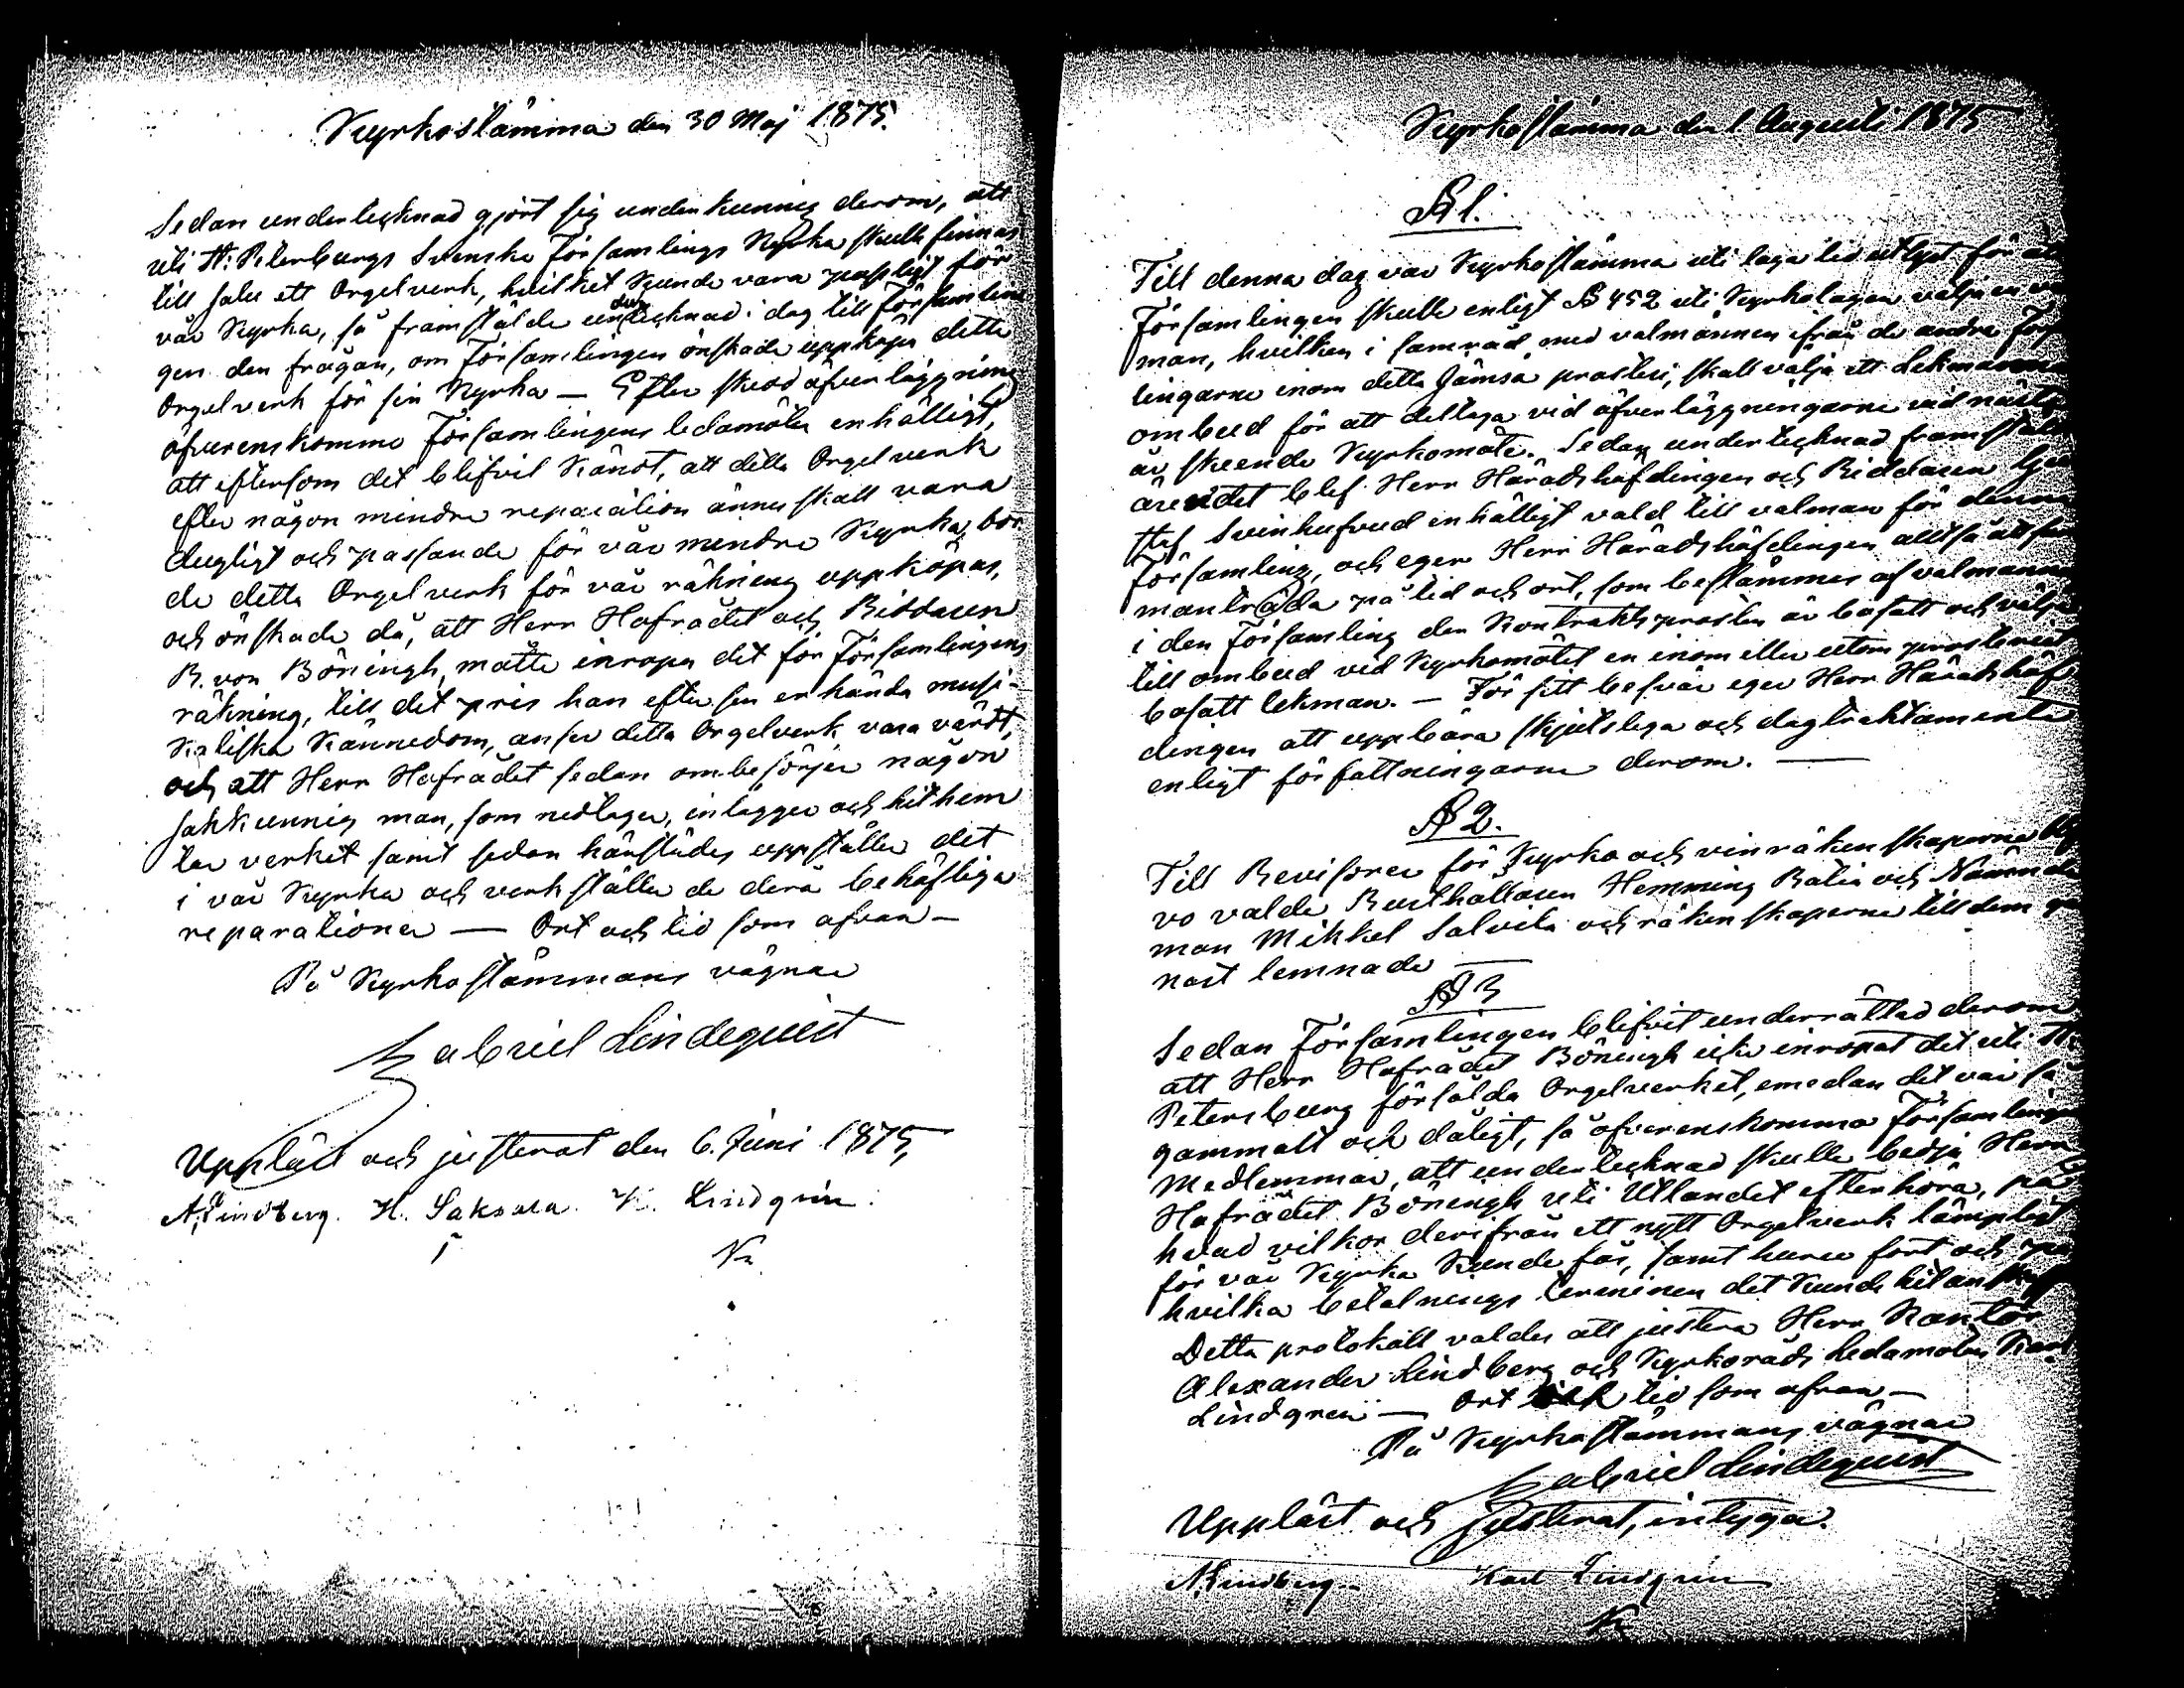 Kyrkostämma den 30 Maj 1875.
Sedan undertecknad gjort sig underkunnig derom, att
uti St: Petersburgs Svenska Församlings Kyrka skulle finnas
till salu ett Orgelverk, hvilket kunde vara passligt för
vår Kyrka, så framstälde undertecknad i dag till Församlin-
gen den frågan, om Församlingen önskade uppköpa detta
Orgelverk för sin Kyrka — Efter skedd öfverläggning
öfverenskommo Församlingens ledamöter enhälligt,
att eftersom det blifvit kändt, att detta Orgelverk
efter någon mindre reparation ännu skall vara
dugligt och passande för vår mindre Kyrka, bor-
de detta Orgelverk för vår räkning uppköpas,
och önskade då, att Herr Hofrådet och Riddaren
R. von Böningh, måtte inropa det för Församlingens
räkning, till det pris han efter sin erkända musi-
kaliska kännedom, anser detta Orgelverk vara värdt,
och att Herr Hofrådet sedan ombesörjer någon
sakkunnig man, som nedtager, inlägger och hithem
tar verket samt sedan härstädes uppställer det
i vår Kyrka och verkställer de derå behöfliga
reparationer — Ort och tid som ofvan —
På Kyrkostämmans vägnar
Gabriel Lindequist
Uppläst och justerat den 6. Juni 1875,
A. Lindberg. H. Saksala. K. Lindgren.
Kyrkostämma den 1 Augusti 1875
§ 1.
Till denna dag var Kyrkostämma uti laga tid utlyst för att
Församlingen skulle enligt § 452 uti Kyrkolagen välja en
man, hvilken i samråd med valmännen ifrån de andra För
lingarne inom detta Jämsä prosteri, skall välja ett Lekmanna
ombud för att deltaga vid öfverläggningarne vid nästa
år skeende Kyrkomöte. Sedan undertecknad framställt
ärendet blef Herr Häradshöfdingen och Riddaren
Svinhufvud enhälligt vald till valman för denna
Församling, och eger Herr Häradshöfdingen alltså att
manträda på tid och ort, som bestämmes af valmännen
i den Församling der Kontraktsprosten är bosatt och välja
till ombud vid Kyrkomötet en inom eller utom prosteriet
bosatt lekman. — För sitt besvär eger Herr Häradshöf
dingen att uppbära skjutslega och dagtraktamente
enligt författningarne derom. —
§ 2.
Till Revisorer för Kyrko och vinräkenskaperne
vo valde Rusthållaren Hemming Ratia och Nämnde
man Mikkel Salvila och räkenskaperne till dem
nast lemnade —
§ 3
Sedan Församlingen blifvit underrättad derom
att Herr Hofrådet Böningh icke inropat det uti St.
Petersburg försålda Orgelverket, emedan det var så
gammalt och dåligt, så öfverenskommo Församlingens
medlemmar, att undertecknad skulle bedja Herr
Hofrådet Böningh uti Utlandet efterhöra, på
hvad vilkor derifrån ett nytt Orgelverk lämpligt
för vår Kyrka kunde fås, samt huru fort och på
hvilka betalnings terminer det kunde hitanskaf
Detta protokoll valdes att justera Herr Kantor
Alexander Lindberg och Kyrkoråds ledamoten Karl
Lindgren — Ort och tid som ofvan —
På Kyrkostämmans vägnar
Gabriel Lindequist
Uppläst och justerat, intyga.
A. Lindberg. Karl Lindgren